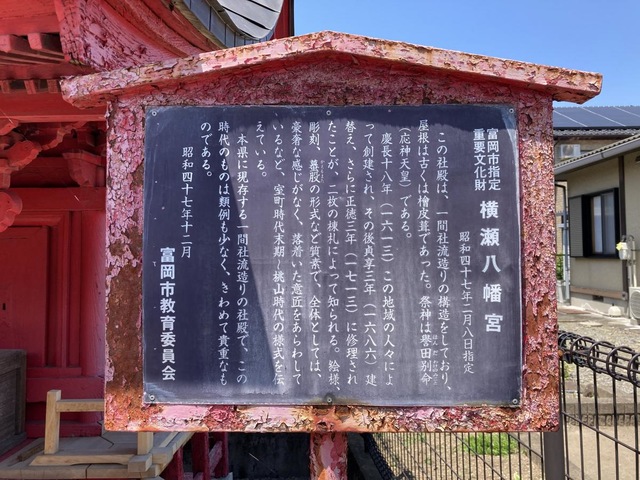 富岡市指定
重要文化財
横瀬八幡宮
昭和四十七年二月八日指定
この社殿は、一間社流造りの構造をしており、
屋根は古くは檜皮葺であった。祭神は誉田別命
(応神天皇)である。
慶長十八年(一六一三)この地域の人々によ
って創建され、その後貞享三年(一六八六)建
替え、さらに正徳三年(一七一三)に修理され
たことが、二枚の棟札によって知られる。絵様、
彫刻、蟇股の形式など質素で、全体としては、
豪奢な感じがなく、落着いた意匠をあらわして
いるなど、室町時代末期~桃山時代の様式を伝
えている。
本県に現存する一間社流造りの社殿で、この
時代のものは類例も少なく、きわめて貴重なも
のである。
昭和四十七年十二月
富岡市教育委員会